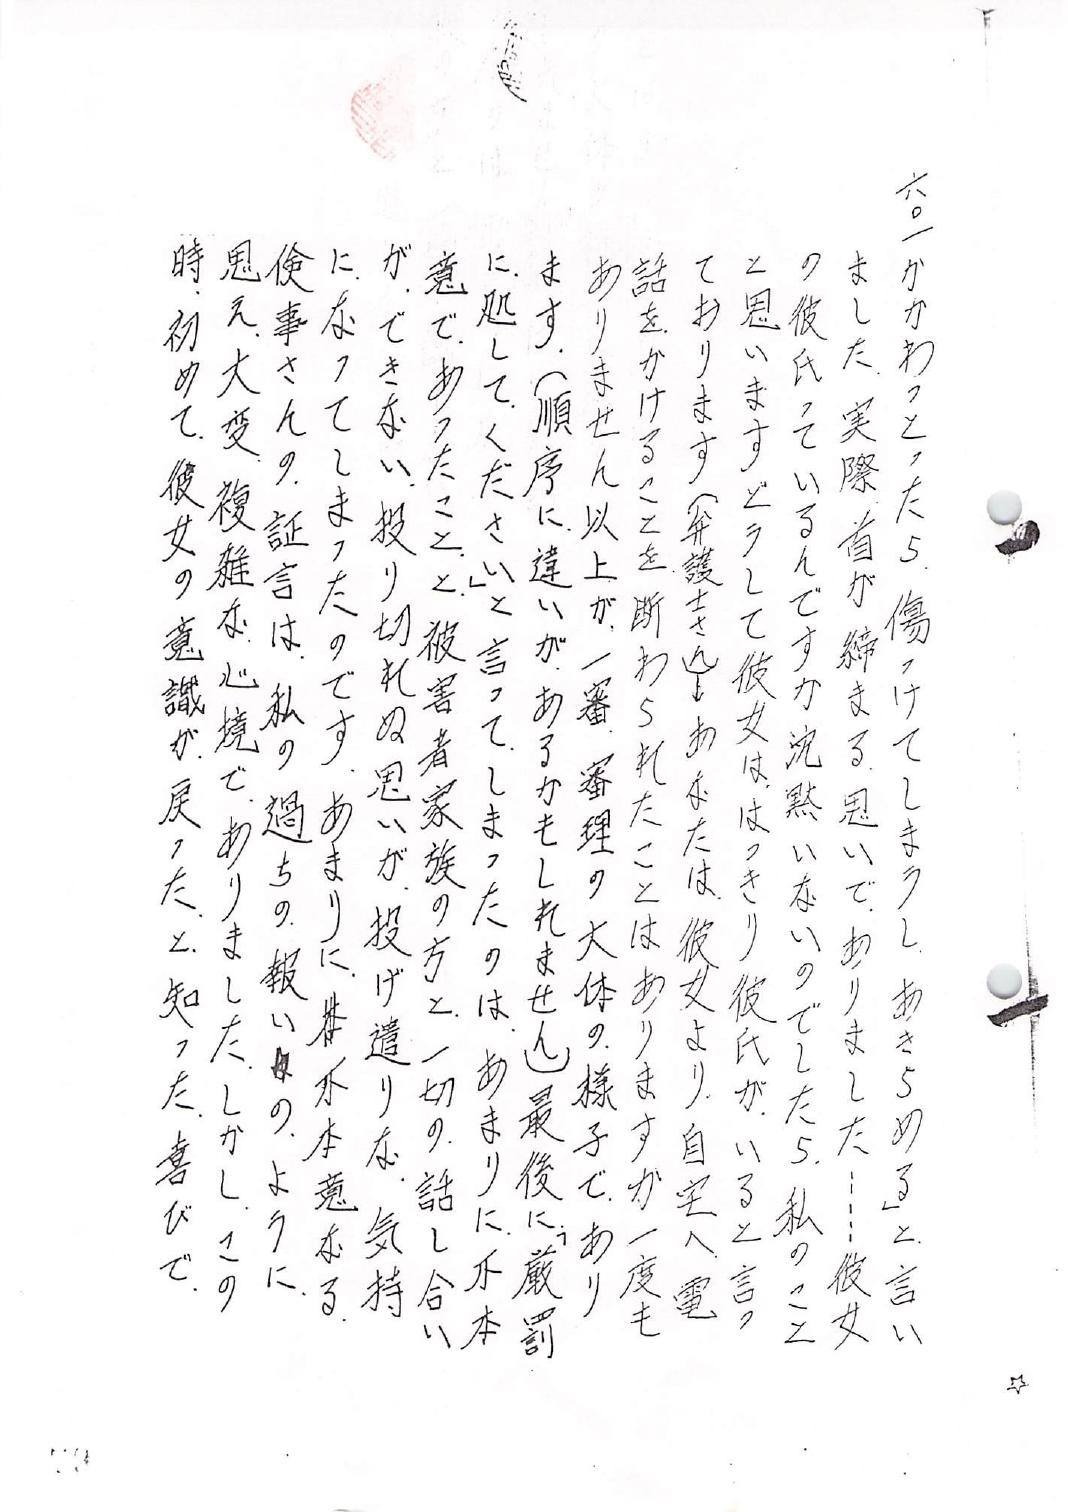 六〇一かかわっとったら、傷つけてしまうし、あきらめる」と、言い
ました、実際、首が締まる、思いで、ありました-----彼女
の彼氏っているんですか沈黙いないのでしたら、私のこと
と思いますどうして彼女は、はっきり彼氏が、いると言っ
ております(弁護士さん)→あなたは、彼女より、自宅へ、電
話を、かけることを、断わられたことはありますか一度も
ありません以上が、一審、審理の大体の、様子で、あり
ます、(順序に、違いが、あるかもしれません)最後に、「厳罰
に、処して、ください」と言って、しまったのは、あまりに、不本
意で、あったこと、と、被害者家族の方と、一切の、話し合い
が、できない、投り切れぬ思いが、投げ遣りな、気持
に、なってしまったのです、あまりに、不本意なる、
倹事さんの、証言は、私の過ちの、報いの、ように、
思え、大変、複雑な、心境で、ありました、しかし、この
時、初めて、彼女の意識が、戻った、と、知った、喜びで、